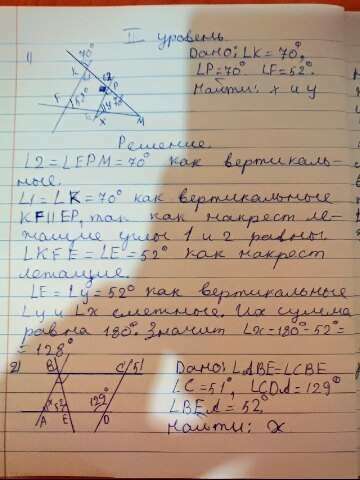 II уровень
1)
Дано: ∠K = 70°,
∠P = 70° ∠F = 52°
Найти: x и y
70°
K
F
52°
P
70°
y
x
M
Решение.
∠2 = ∠EPM = 70° как вертикаль-
ные.
∠1 = ∠K = 70° как вертикальные
KF∥EP, так как накрест ле-
жащие углы 1 и 2 равны.
∠KFE = ∠E = 52° как накрест
лежащие.
∠E = ∠y = 52° как вертикальные
∠y и ∠x смежные. Их сумма
равна 180°. Значит ∠x = 180° - 52° =
= 128°
2)
Дано: ∠ABE = ∠CBE
∠C = 51°, ∠CDA = 129°
∠BEA = 52°
Найти: x
B
C
51
x
52
129°
A
E
D